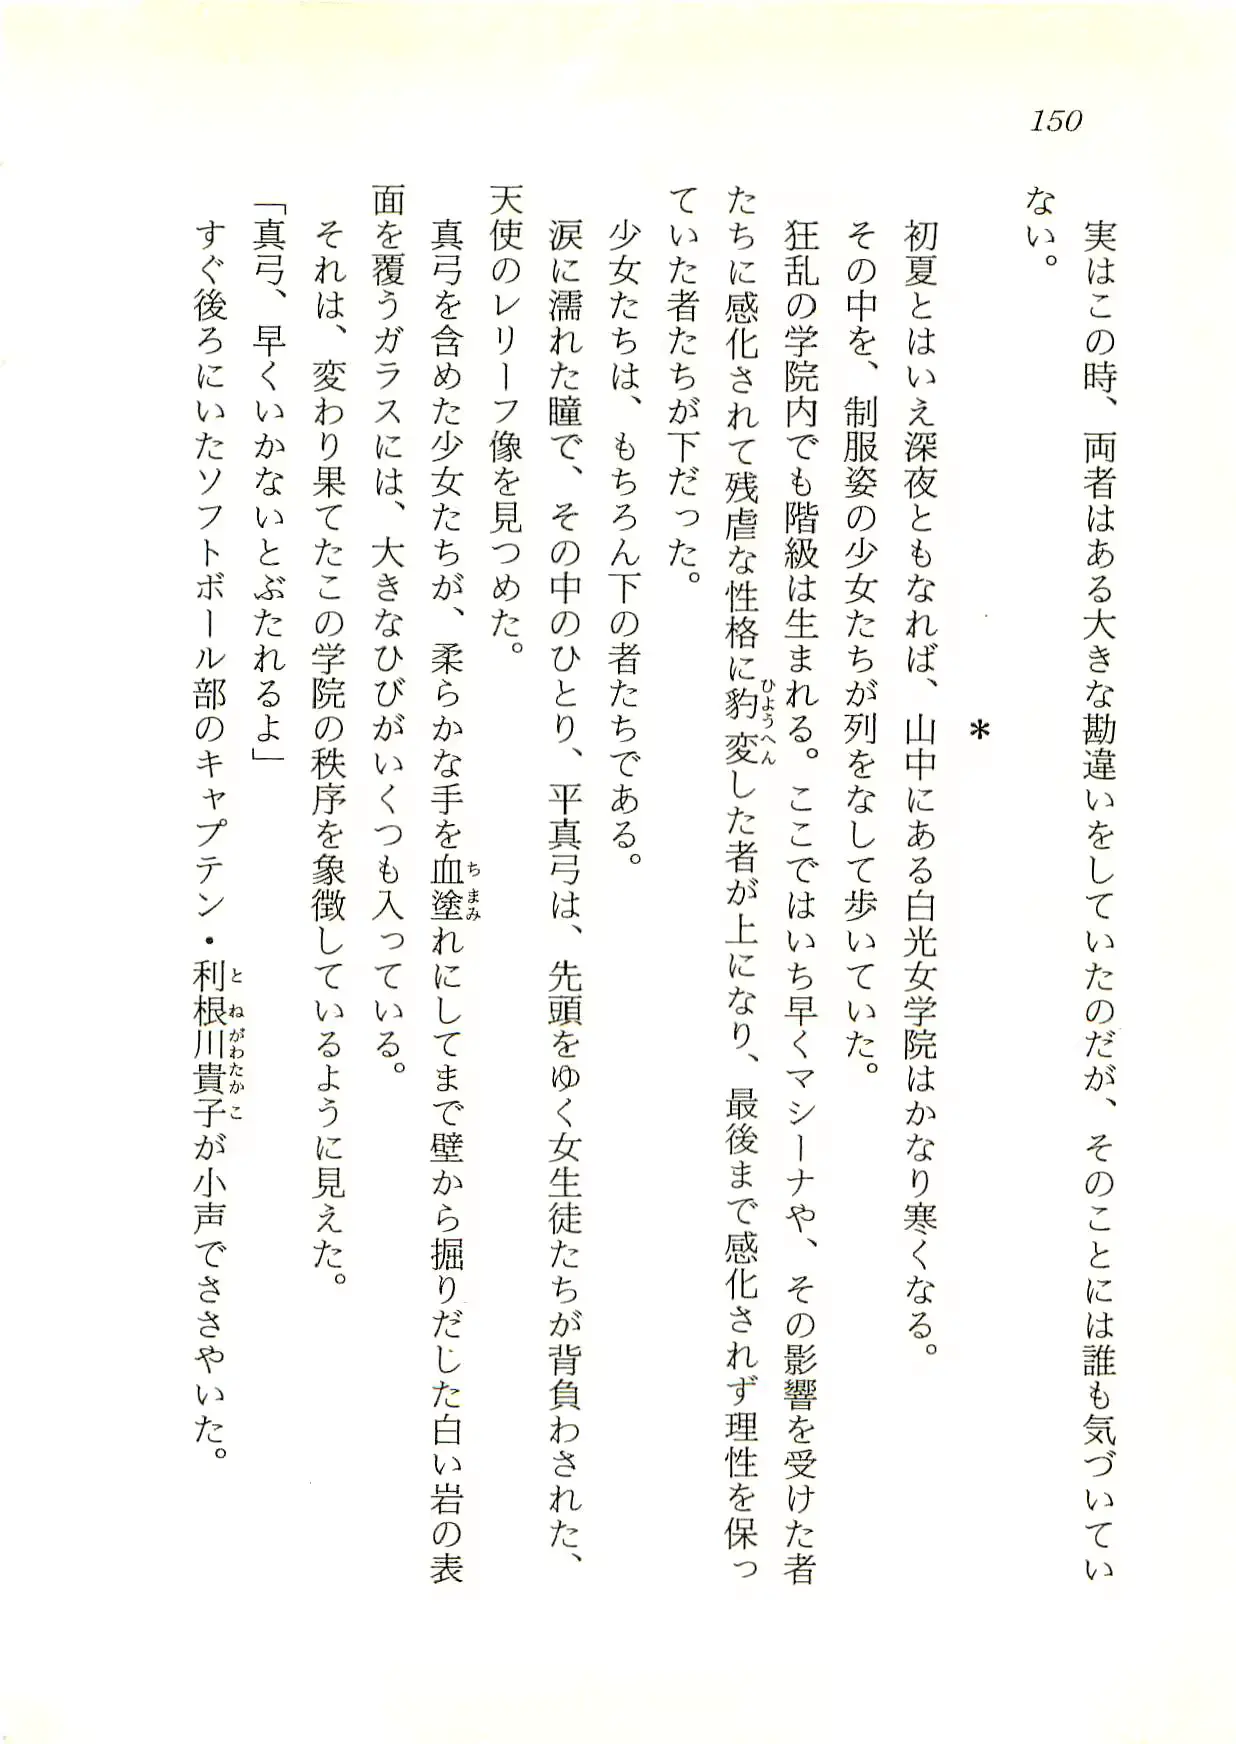 150
実はこの時、両者はある大きな勘違いをしていたのだが、そのことには誰も気づいてい
ない。
＊
初夏とはいえ深夜ともなれば、山中にある白光女学院はかなり寒くなる。
その中を、制服姿の少女たちが列をなして歩いていた。
狂乱の学院内でも階級は生まれる。ここではいち早くマシーナや、その影響を受けた者
たちに感化されて残虐な性格に豹変した者が上になり、最後まで感化されず理性を保っ
ていた者たちが下だった。
少女たちは、もちろん下の者たちである。
涙に濡れた瞳で、その中のひとり、平真弓は、先頭をゆく女生徒たちが背負わされた、
天使のレリーフ像を見つめた。
真弓を含めた少女たちが、柔らかな手を血塗れにしてまで壁から掘りだじた白い岩の表
面を覆うガラスには、大きなひびがいくつも入っている。
それは、変わり果てたこの学院の秩序を象徴しているように見えた。
「真弓、早くいかないとぶたれるよ」
すぐ後ろにいたソフトボール部のキャプテン・利根川貴子が小声でささやいた。